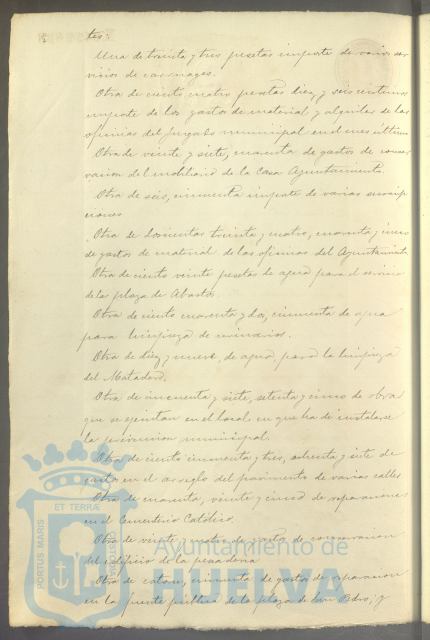 tes:
Una de treinta y tres pesetas importe de varios ser
vicios de carruages.
Otra de ciento cuatro pesetas diez y seis centimos
importe de los gastos de material y alquiler de las
oficinas del Juzgado municipal en el mes ultimo
Otra de veinte y siete, cuarenta de gastos de conser
vacion del mobiliario de la Casa Ayuntamiento.
Otra de seis, cincuenta importe de varias suscrip
ciones
Otra de doscientas treinta y cuatro, cuarenta y cinco
de gastos de material de las oficinas del Ayuntamiento
Otra de ciento veinte pesetas de agua para el servicio
de la plaza de Abastos
Otra de ciento cuarenta y dos, cincuenta de agua
para limpieza de urinarios.
Otra de diez y nueve, de agua, para la limpieza
del Matadero.
Otra de cincuenta y siete, setenta y cinco de obra
que se ejecutan en el local en que ha de instalarse
la prevencion municipal.
Otra de ciento cincuenta y tres, ochenta y siete de
gasto en el arreglo del pavimento de varias calles
Otra de cuarenta, veinte y cinco de reparaciones
en el Cementerio Católico.
Otra de veinte y cuatro de gastos de conservacion
del edificio de la pescaderia
Otra de catorce, cincuenta de gastos de reparacion
en la fuente pública de la plaza de San Pedro; y
PORTUS MARIS
ET TERRÆ
Ayuntamiento de
HUELVA